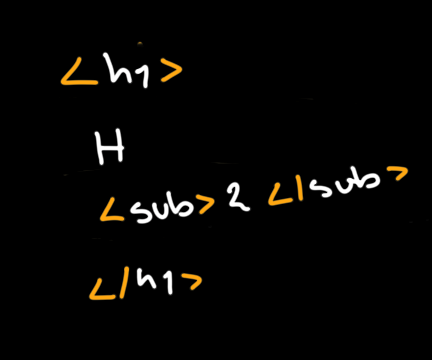 <h1>
H
<sub>2 </sub>
</h1>